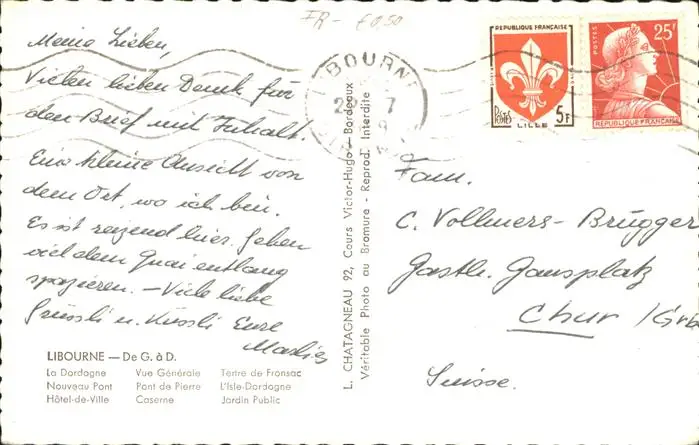 FR- €0,50
Meine Lieben,
Vielen lieben Dank für
den Brief mit Inhalt.
Eine kleine Ansicht von
dem Ort, wo ich bin.
Es ist reizend hier. Gehen
viel dem Quai entlang
spazieren. – Viele liebe
Grüssli u. Küssli Eure
Marlies
LIBOURNE — De G. à D.
La Dordogne Vue Générale Tertre de Fronsac
Nouveau Pont Pont de Pierre L'Isle-Dordogne
Hôtel-de-Ville Caserne Jardin Public
L. CHATAGNEAU 92, Cours Victor-Hugo - Bordeaux
Véritable Photo au Bromure - Reprod. Interdite
LIBOURNE
REPUBLIQUE FRANÇAISE
POSTES
LILLE
5F
POSTES
25F
REPUBLIQUE FRANÇAISE
Fam.
C. Vollmers-Brügger
Gasth. Gansplatz
Chur /Grb
Suisse.